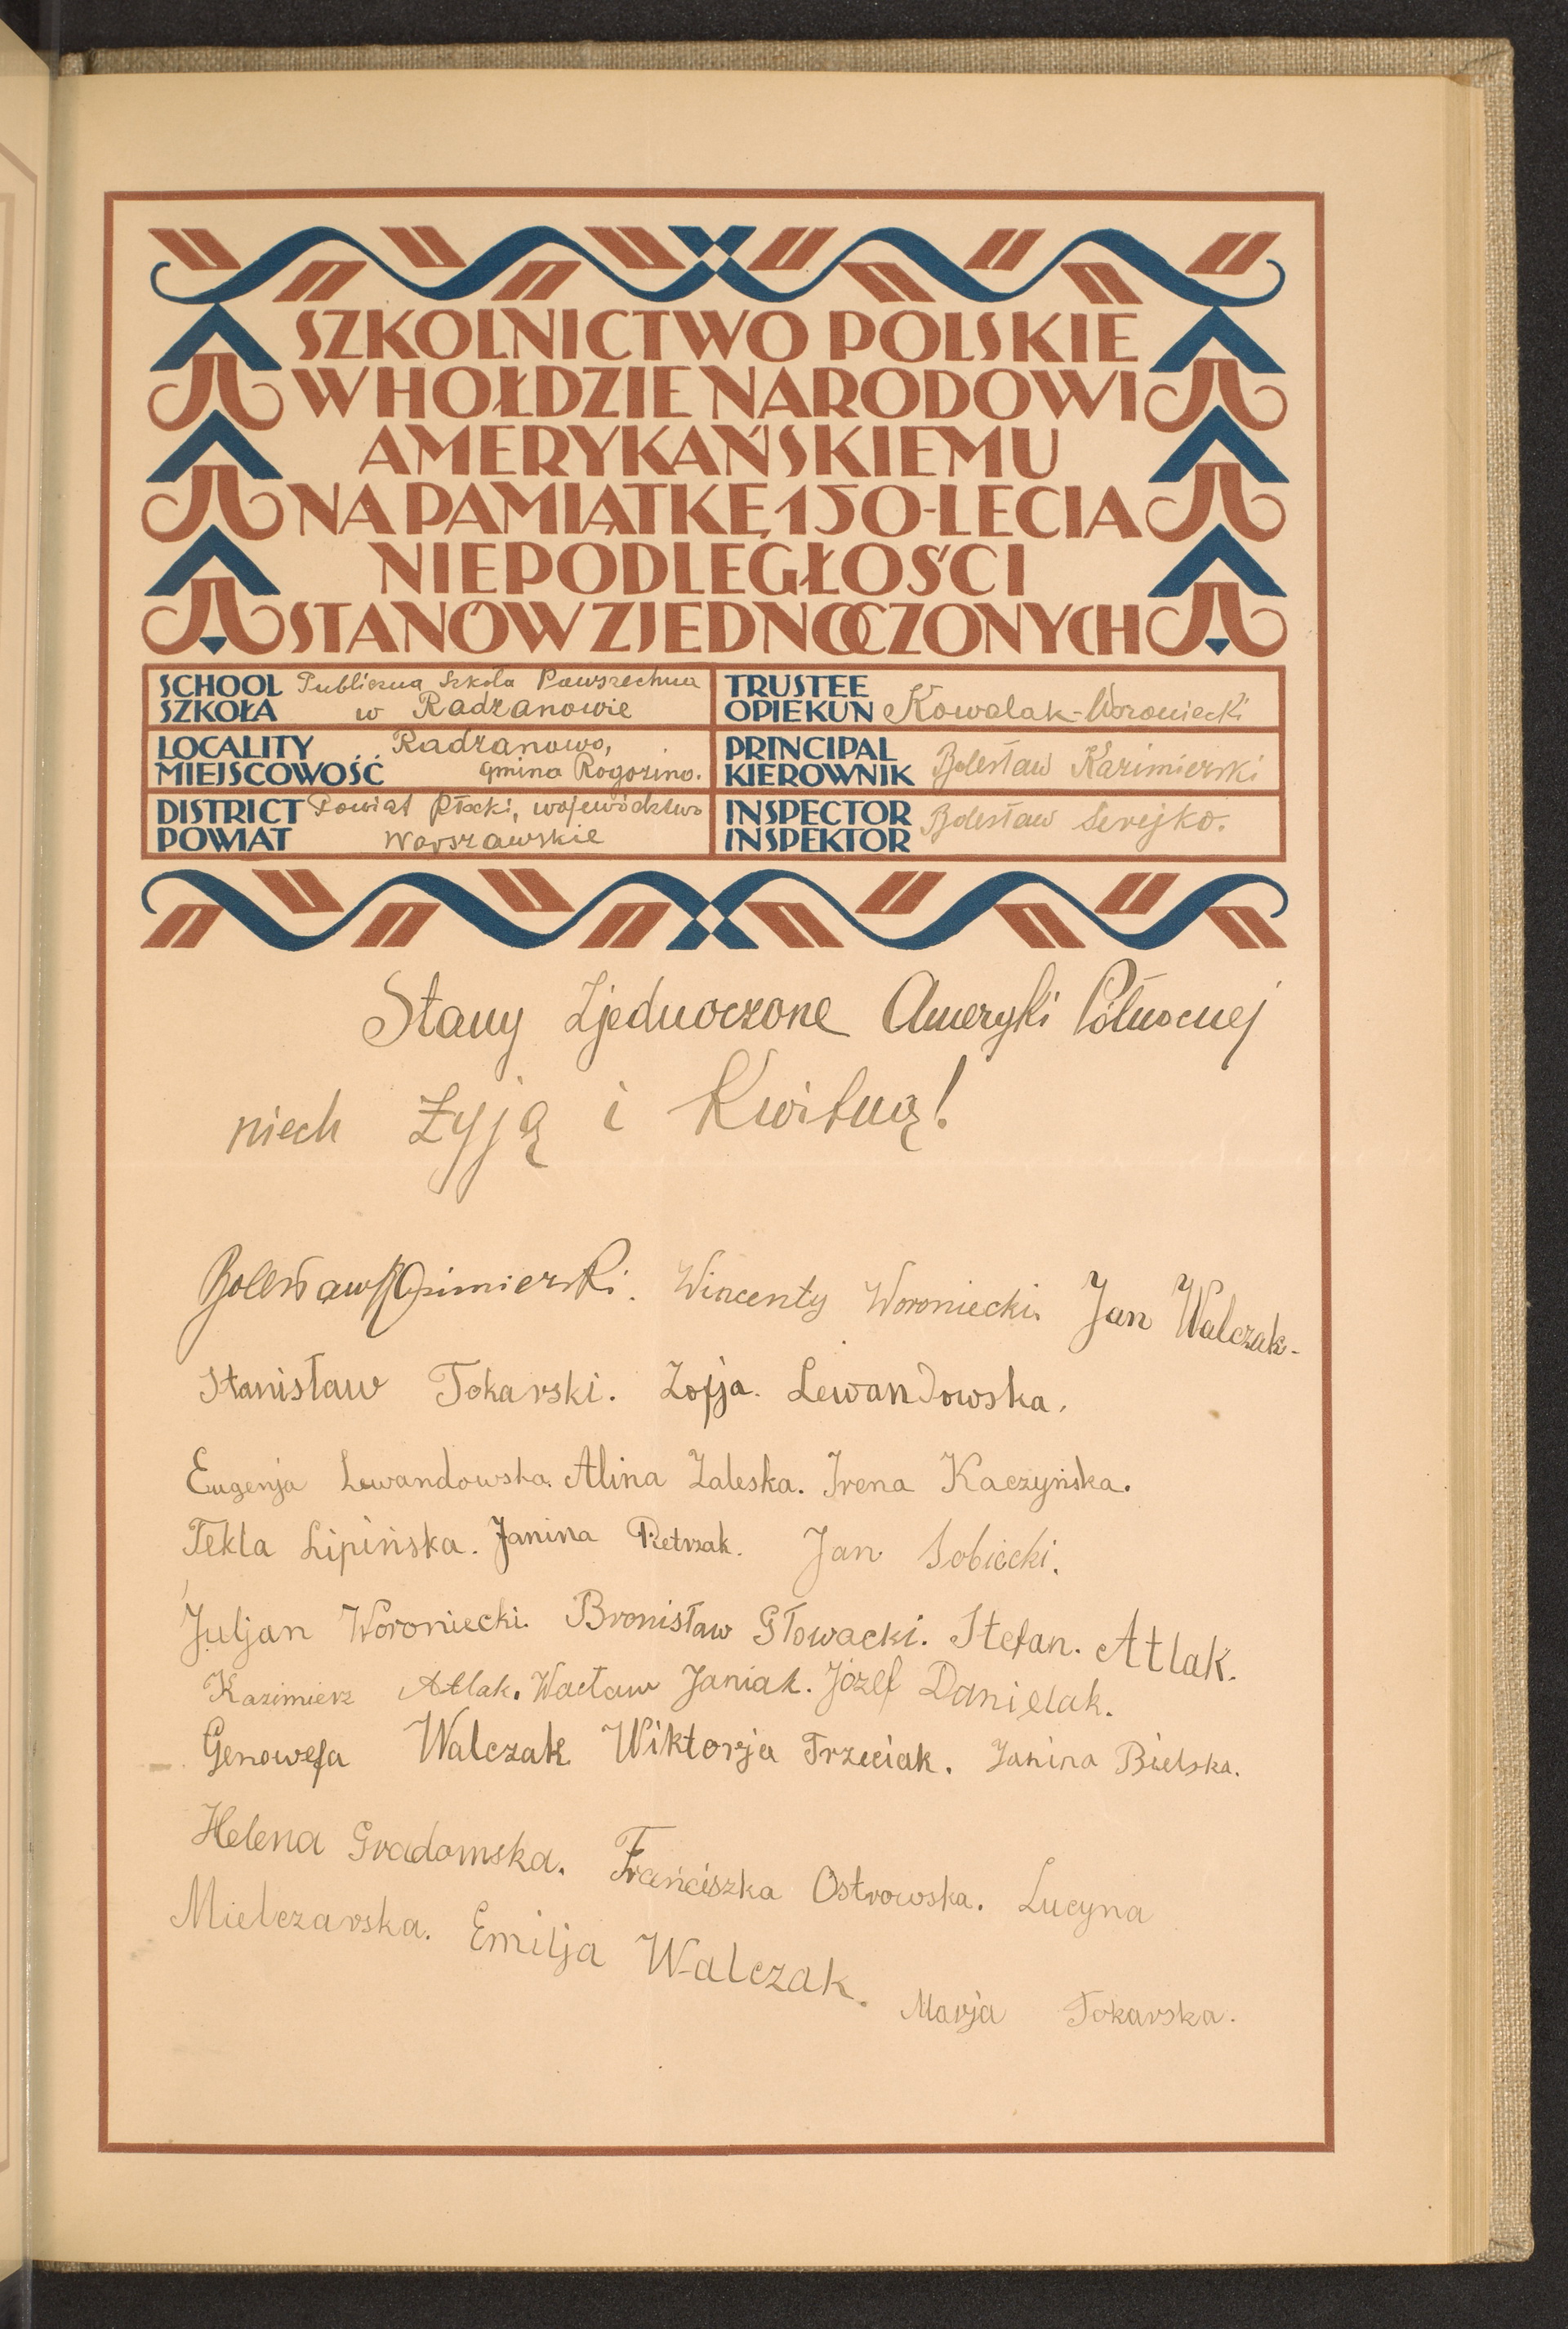 SZKOLNICTWO POLSKIE
W HOŁDZIE NARODOWI
AMERYKAŃSKIEMU
NA PAMIĄTKĘ 150-LECIA
NIEPODLEGŁOŚCI
STANÓW ZJEDNOCZONYCH
SCHOOL
SZKOŁA
Publiczna Szkoła Powszechna
w Radzanowie
TRUSTEE
OPIEKUN
Kowalak-Woroniecki
LOCALITY
MIEJSCOWOŚĆ
Radzanowo,
gmina Rogozino.
PRINCIPAL
KIEROWNIK
Bolesław Kazimierski
DISTRICT
POWIAT
Powiat Płocki, województwo
Warszawskie
INSPECTOR
INSPEKTOR
Bolesław Serejko.
Stany Zjednoczone Ameryki Północnej
niech żyją i Kwitną!
Bolesław Kazimierski. Wincenty Woroniecki. Jan Walczak-
Stanisław Tokarski. Zofja. Lewandowska.
Eugenja Lewandowska. Alina Zaleska. Irena Kaczyńska.
Tekla Lipińska. Janina Pietrzak. Jan Sobiecki.
Juljan Woroniecki. Bronisław Głowacki. Stefan. Atlak.
Kazimierz Atlak. Wacław Janiak. Józef Danielak.
Genowefa Walczak Wiktorja Trzeciak. Janina Bielska.
Helena Gradomska. Franciszka Ostrowska. Lucyna
Mielczarska. Emilja Walczak.
Marja Tokarska.